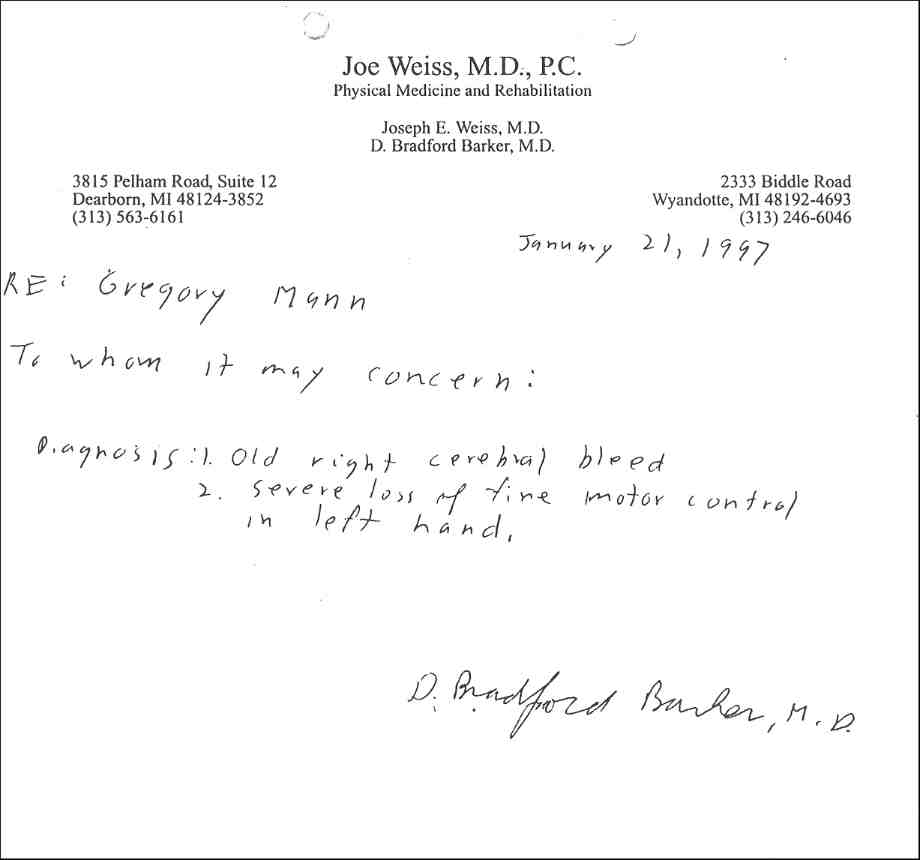 Joe Weiss, M.D., P.C.
Physical Medicine and Rehabilitation
Joseph E. Weiss, M.D.
D. Bradford Barker, M.D.
3815 Pelham Road, Suite 12
Dearborn, MI 48124-3852
(313) 563-6161
2333 Biddle Road
Wyandotte, MI 48192-4693
(313) 246-6046
January 21, 1997
RE: Gregory Mann
To whom it may concern:
Diagnosis: 1. Old right cerebral bleed
2. severe loss of fine motor control
in left hand.
D. Bradford Barker, M.D.